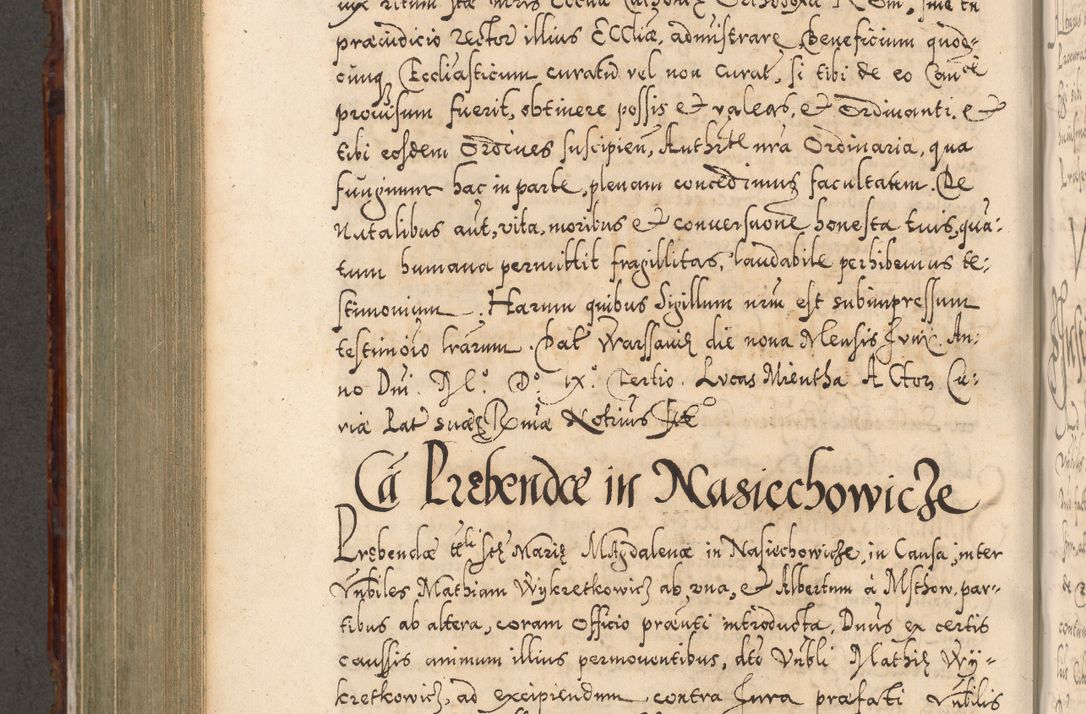 præiudicio Rector illius Eccliæ, admĩstrare, Beneficium quod-
cunq, Ecclĩasticum curatũ vel non curat, si tibi de eo Cance
prouisum fuerit, obtinere possis et valeas, et Ordinanti, et
tibi eosdem Ordines suscipien, Authte nrã Ordinaria, qua
fungimur hac in parte, plenam concedimus facultatem. De
Natalibus aut, vita, moribus et conuersaone honesta tuis, quã-
tum humana permittit fragillitas, laudabile perhibemus te-
stimonium. Harum quibus Sigillum nrm est subimpressum
testimoio lrarum. Dat Warssauiæ die nona Mensis Junii. An-
no Dni. M.º D.º ix.º Tertio. Lucas Mientha Actor, Cu-
riæ Lat suæq Rmæ Notrius
Cã Prebendæ in Nasiechowicze
Prebendæ tli Stæ Mariæ Magdalenæ in Nasiechowicze, in Causa, inter
Vnbiles Mathiam Wykretkowicz ab, vna, et Albertum à Msthow, par-
tibus ab altera, coram Officio præunti introducta, Dnus ex certis
caussis animum illius permouentibus, dto Vnbli Mathiæ Wy-
kretkowicz, ad excipiendum, contra Jura præfati Vnbilis